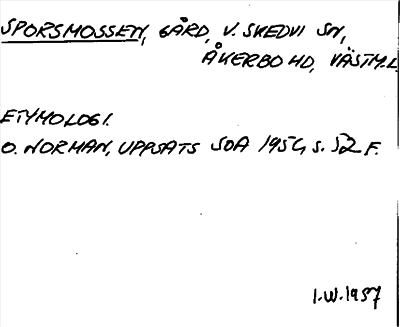 SPORSMOSSEN, GÅRD, V. SKEDVI SN,
ÅKERBO HD, VÄSTM.L.
ETYMOLOGI.
O. NORMAN, UPPSATS SOA 1954, S. 52 F.
I.W. 1957